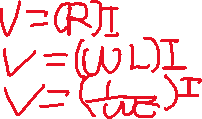 V=(R)I
V=(ωL)I
V=(1/ωC)I